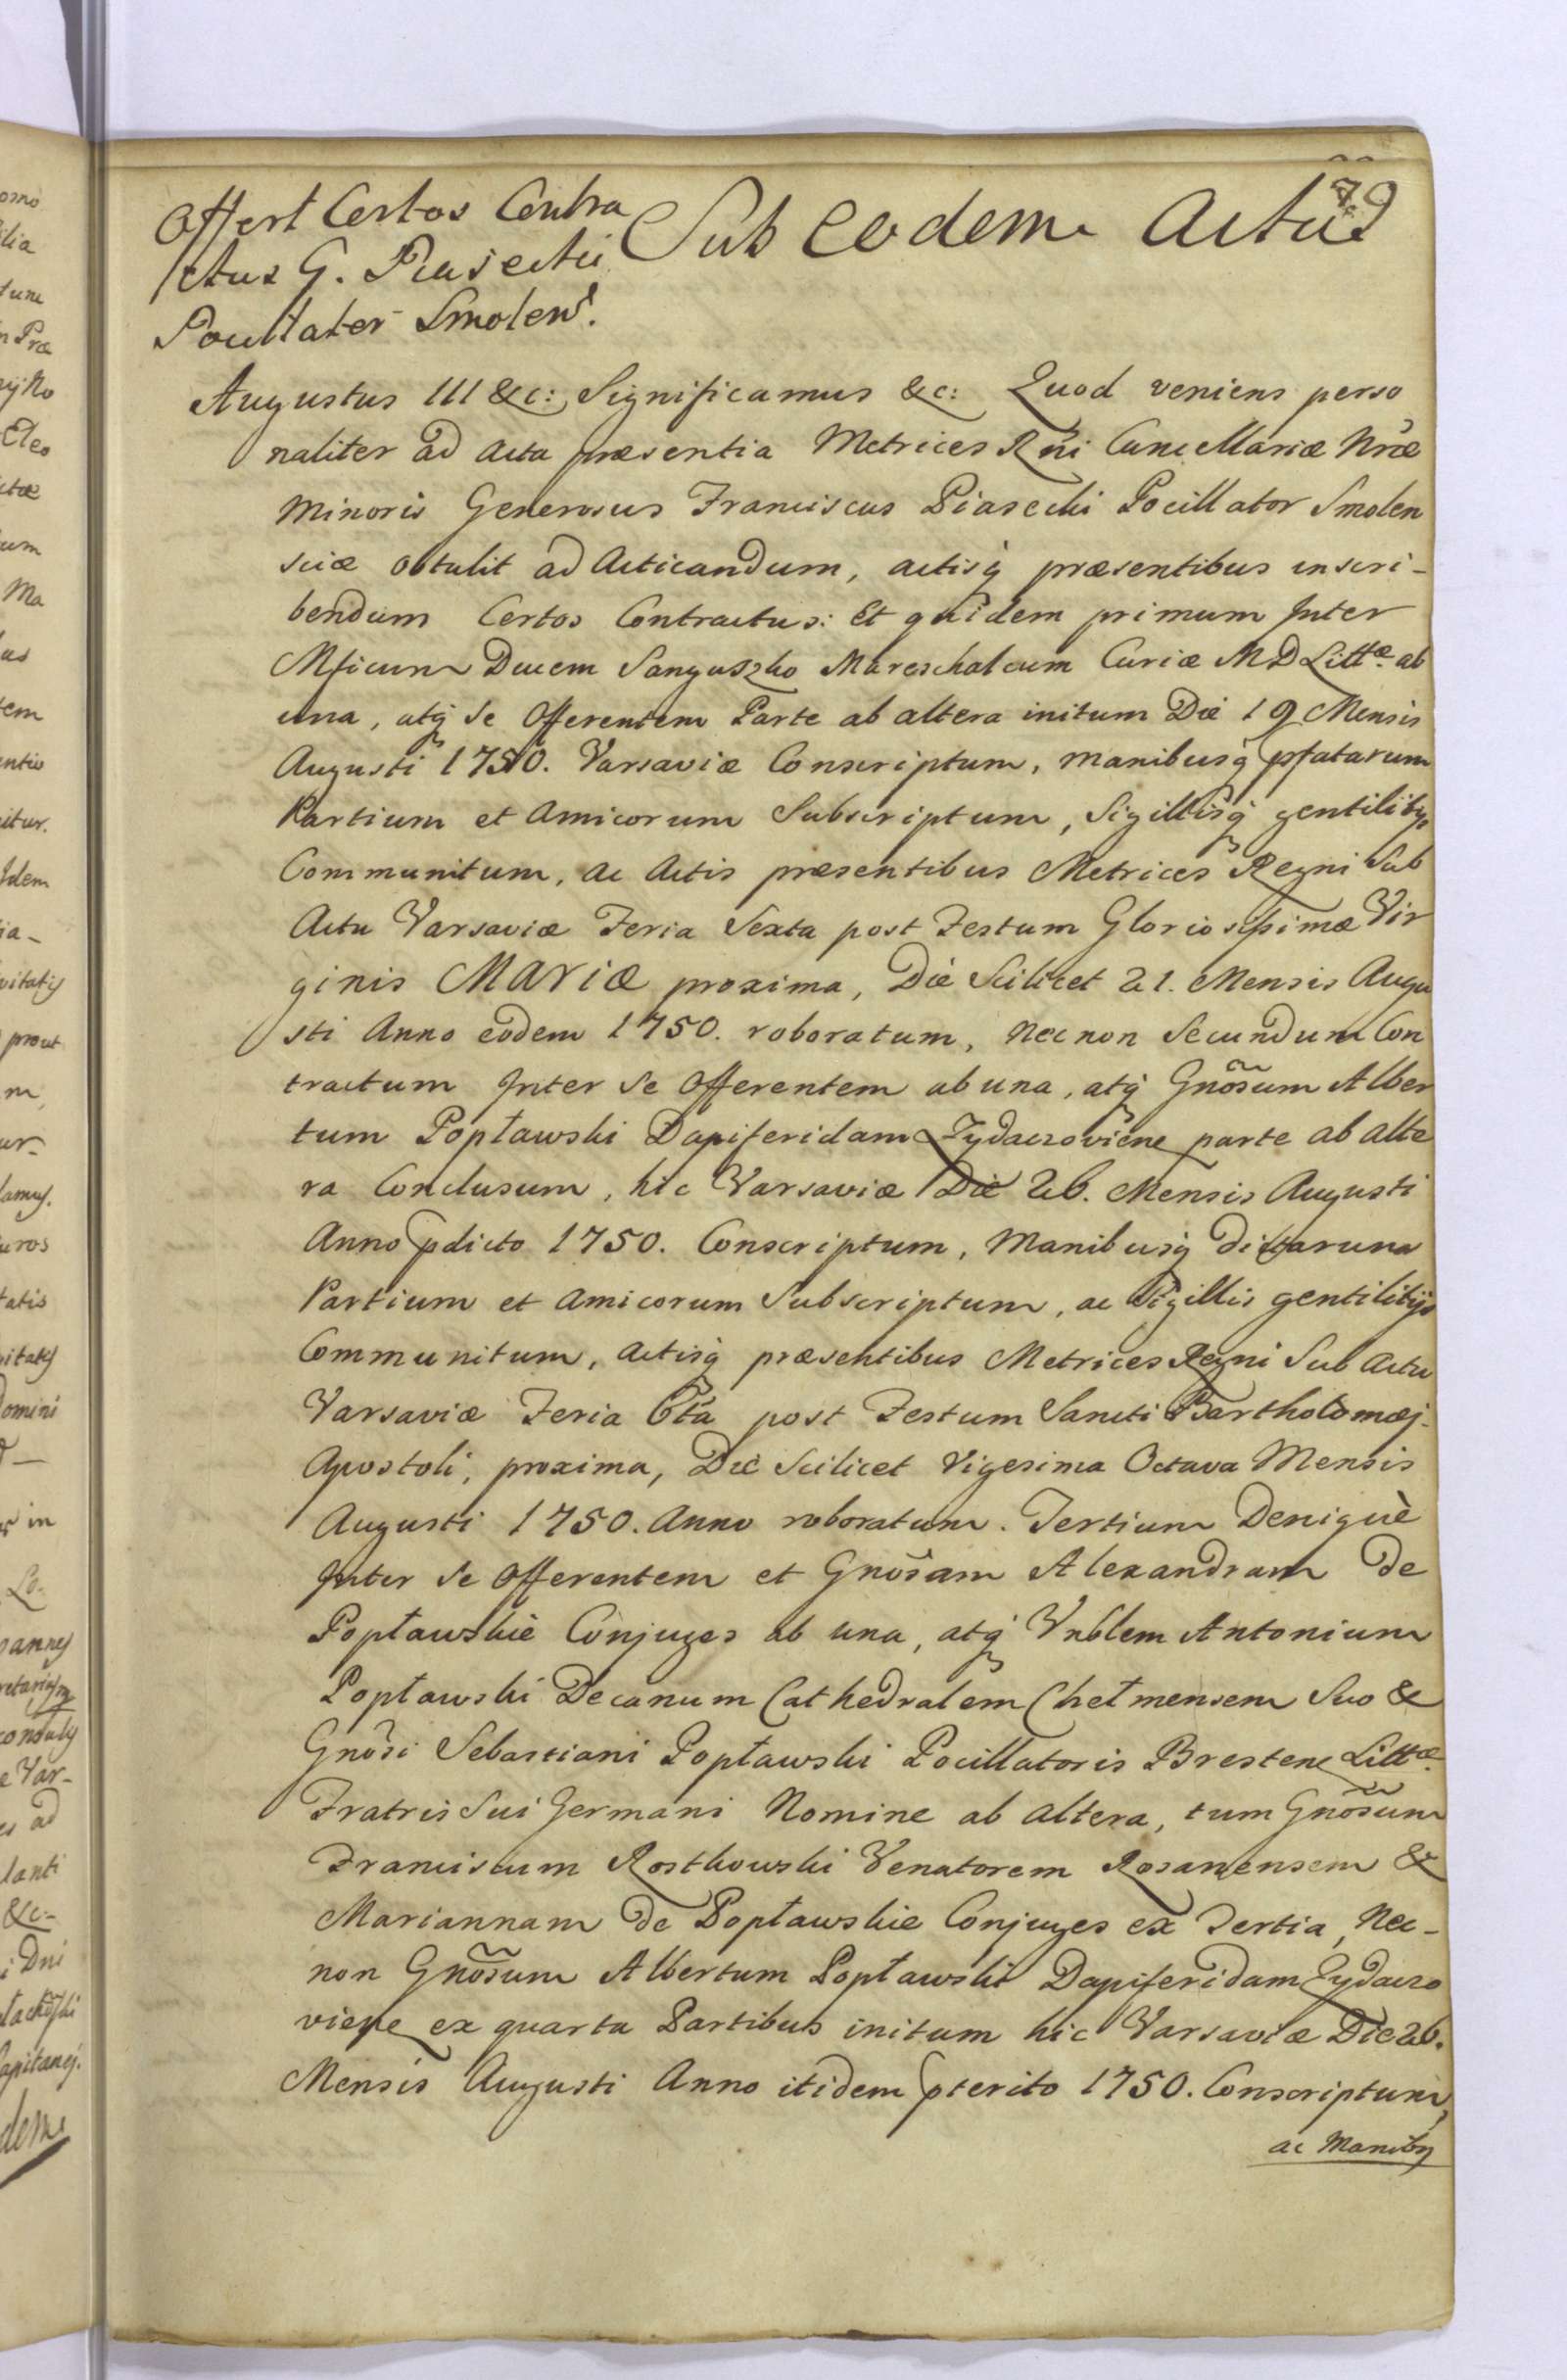 79
Offert Certos Contra
ctus G. Piasecki
Pocillator Smolens.
Sub eodem Actu
Augustus III &c: Significamus &c: Quod veniens perso
naliter ad Acta præsentia Metrices Rni Cancellariæ Nræ
Minoris Generosus Franciscus Piasecki Pocillator Smolen
sciæ obtulit ad Acticandum, actisq præsentibus inscri-
bendum Certos Contractus: Et quidem primum Inter
Mficum Ducem Sanguszko Mareschalcum Curiæ M D Littæ ab
una, atq se Offerentem Parte ab altera initum Die 19 Mensis
Augusti 1750. Varsaviæ Conscriptum, manibusq pfatarum
Partium et Amicorum Subscriptum, Sigillisq gentilitijs
Communitum, ac Actis præsentibus Metrices Regni Sub
Actu Varsaviæ Feria Sexta post Festum Gloriosissimæ Vir
ginis Mariæ proxima, Die Scilicet 21. Mensis Augu
sti Anno eodem 1750. roboratum, nec non Secundum Con
tractum Inter se Offerentem ab una, atq Gnosum Alber
tum Popławski Dapiferidam Zydaczoviene parte ab alte
ra Conclusum, hic Varsaviæ Die 26. Mensis Augusti
Anno pdicto 1750. Conscriptum, Manibusq dictarum
Partium et Amicorum Subscriptum, ac Sigillis gentilitijs
Communitum, actisq præsentibus Metrices Regni Sub Actu
Varsaviæ Feria 6ta post Festum Sancti Bartholomæj
Apostoli, proxima, Die Scilicet Vigesima Octava Mensis
Augusti 1750. Anno roboratum. Tertium Deniquè
Inter se Offerentem et Gnosam Alexandram de
Popławskie Conjuges ab una, atq Vnblem Antonium
Popławski Decanum Cathedralem Chełmensem Suo &
Gnosi Sebastiani Popławski Pocillatoris Brestene Littæ
Fratris Sui Germani Nomine ab altera, tum Gnosum
Franciscum Rostkowski Venatorem Rosanensem &
Mariannam de Popławskie Conjuges ex Tertia, Nec-
non Gnosum Albertum Popławski Dapiferidam Zydaczo
viene ex quarta Partibus initum hic Varsaviæ Die 26.
Mensis Augusti Anno itidem pterito 1750. Conscriptum,
ac Manibq